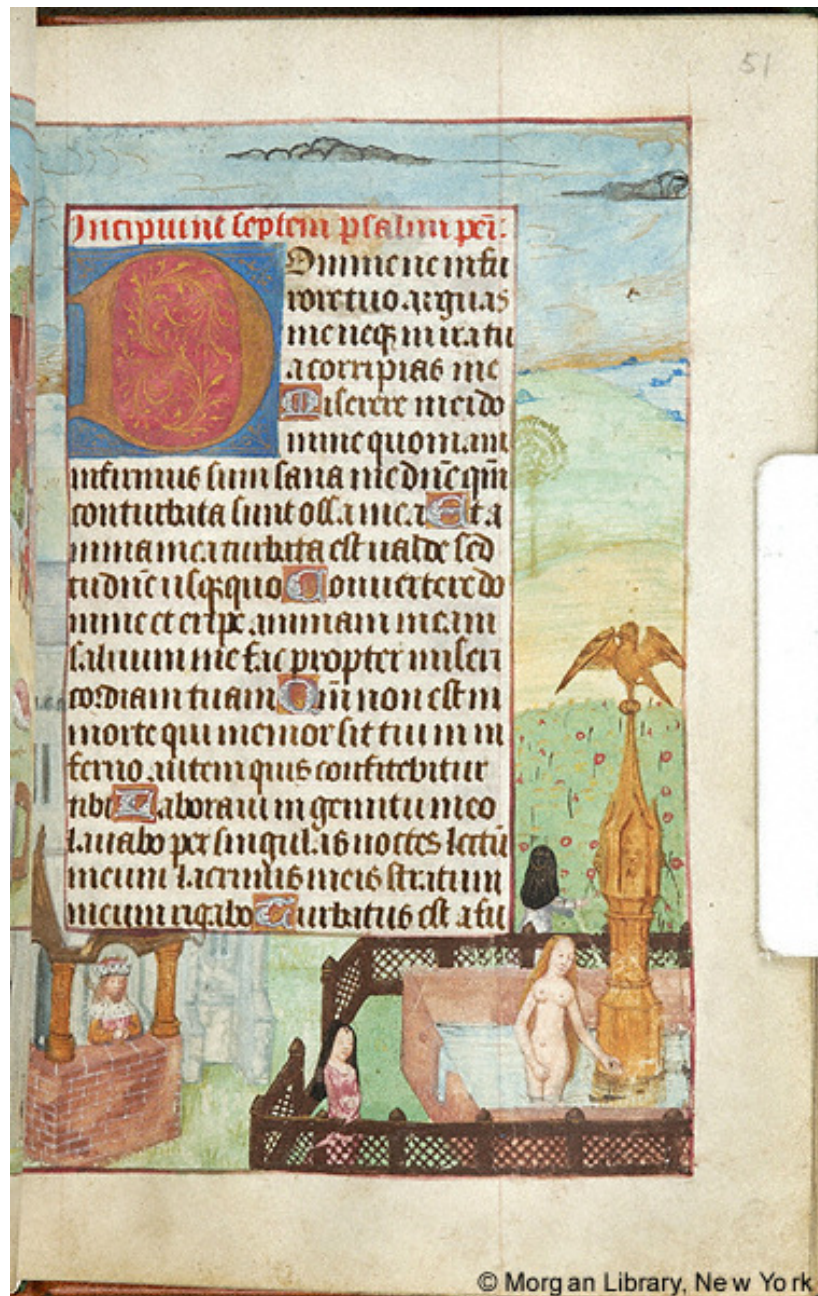 51
Incipiunt septem psalmi peñ:
Domine ne in fu
rore tuo arguas
me neq; in ira tu
a corripias me
Miserere mei do
mine quoniam
infirmus sum sana me dñe qm̄
conturbata sunt ossa mea Et a
nima mea turbata est ualde sed
tu dñe usq;quo Conuertere do
mine et eripe animam meam
saluum me fac propter miseri
cordiam tuam Qm̄ non est in
morte qui memor sit tui in in
ferno autem quis confitebitur
tibi Laboraui in gemitu meo
lauabo per singulas noctes lectū
meum lacrimis meis stratum
meum rigabo Turbatus est a fu
© Morgan Library, New York